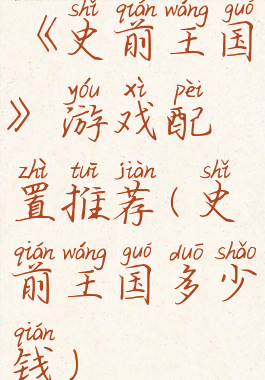 shǐ qián wáng guó
《史前王国
yóu xì pèi
》游戏配
zhì tuī jiàn shǐ
置推荐(史
qián wáng guó duō shǎo
前王国多少
qián
钱)